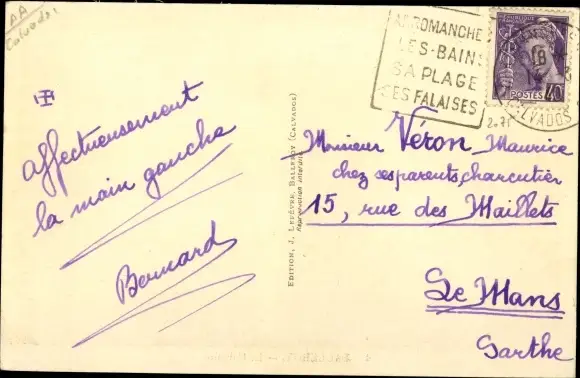 AA
Calvados
ARROMANCHES
LES-BAINS
SA PLAGE
SES FALAISES
POSTES 40
CALVADOS
affectueusement
la main gauche
Bernard
EDITION, J. LEFÈVRE, BALLEROY (CALVADOS)
Reproduction interdite
Monsieur Véron Maurice
chez ses parents, charcutier
15, rue des Maillets
Le Mans
Sarthe